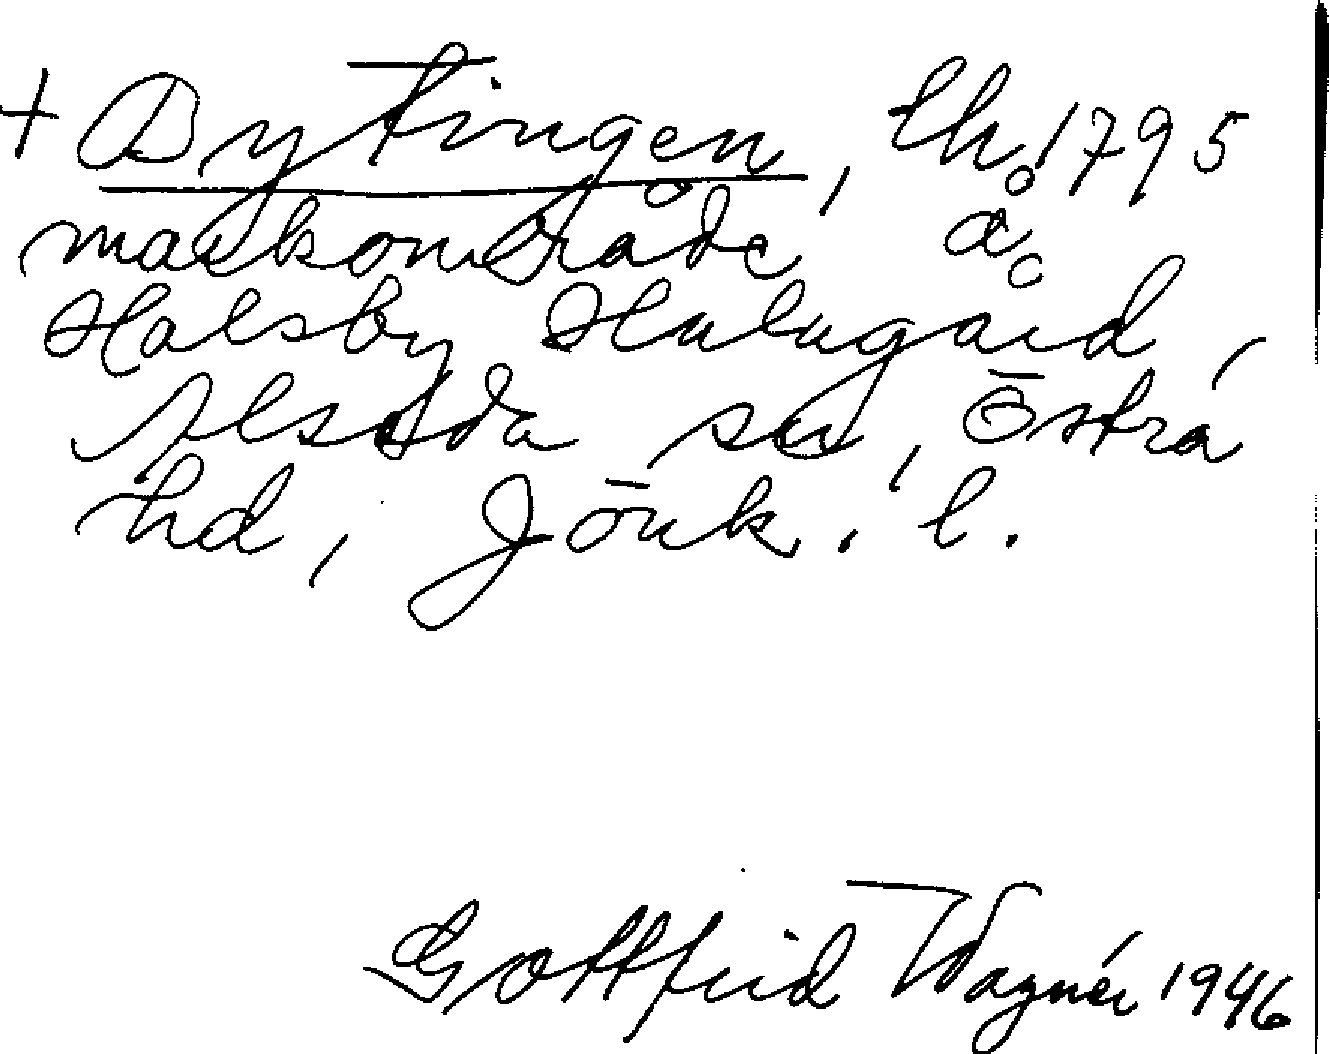 + Bytingen, th. 1795
markområde å
Holsby Hulugård,
Alseda sn, Östra
hd, Jönk. l.
Gottfrid Wagnér 1946